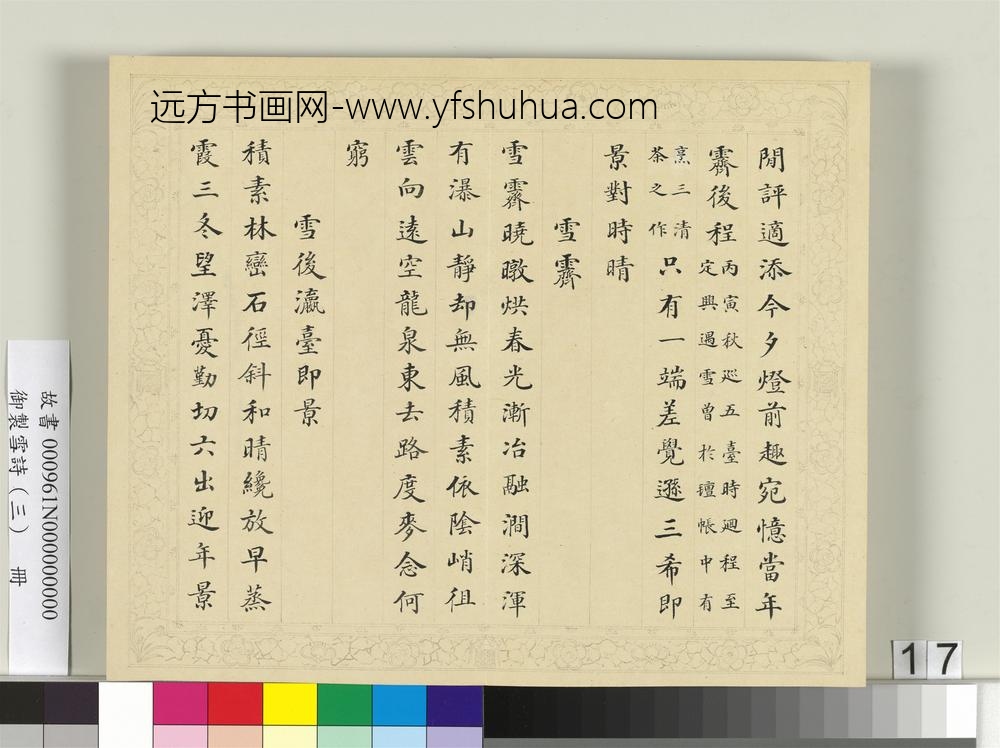 远方书画网-www.yfshuhua.com
閒評適添今夕燈前趣宛憶當年
霽後程丙寅秋巡五臺時迴程至
定興遇雪曾於氊帳中有
烹三清
茶之作只有一端差覺遜三希即
景對時晴
雪霽
雪霽曉暾烘春光漸冶融澗深渾
有瀑山靜却無風積素依陰峭徂
雲向遠空龍泉東去路度麥念何
窮
雪後瀛臺即景
積素林巒石徑斜和晴纔放早蒸
霞三冬望澤憂勤切六出迎年景
故書 000961N000000000
御製雪詩(三) 冊
17